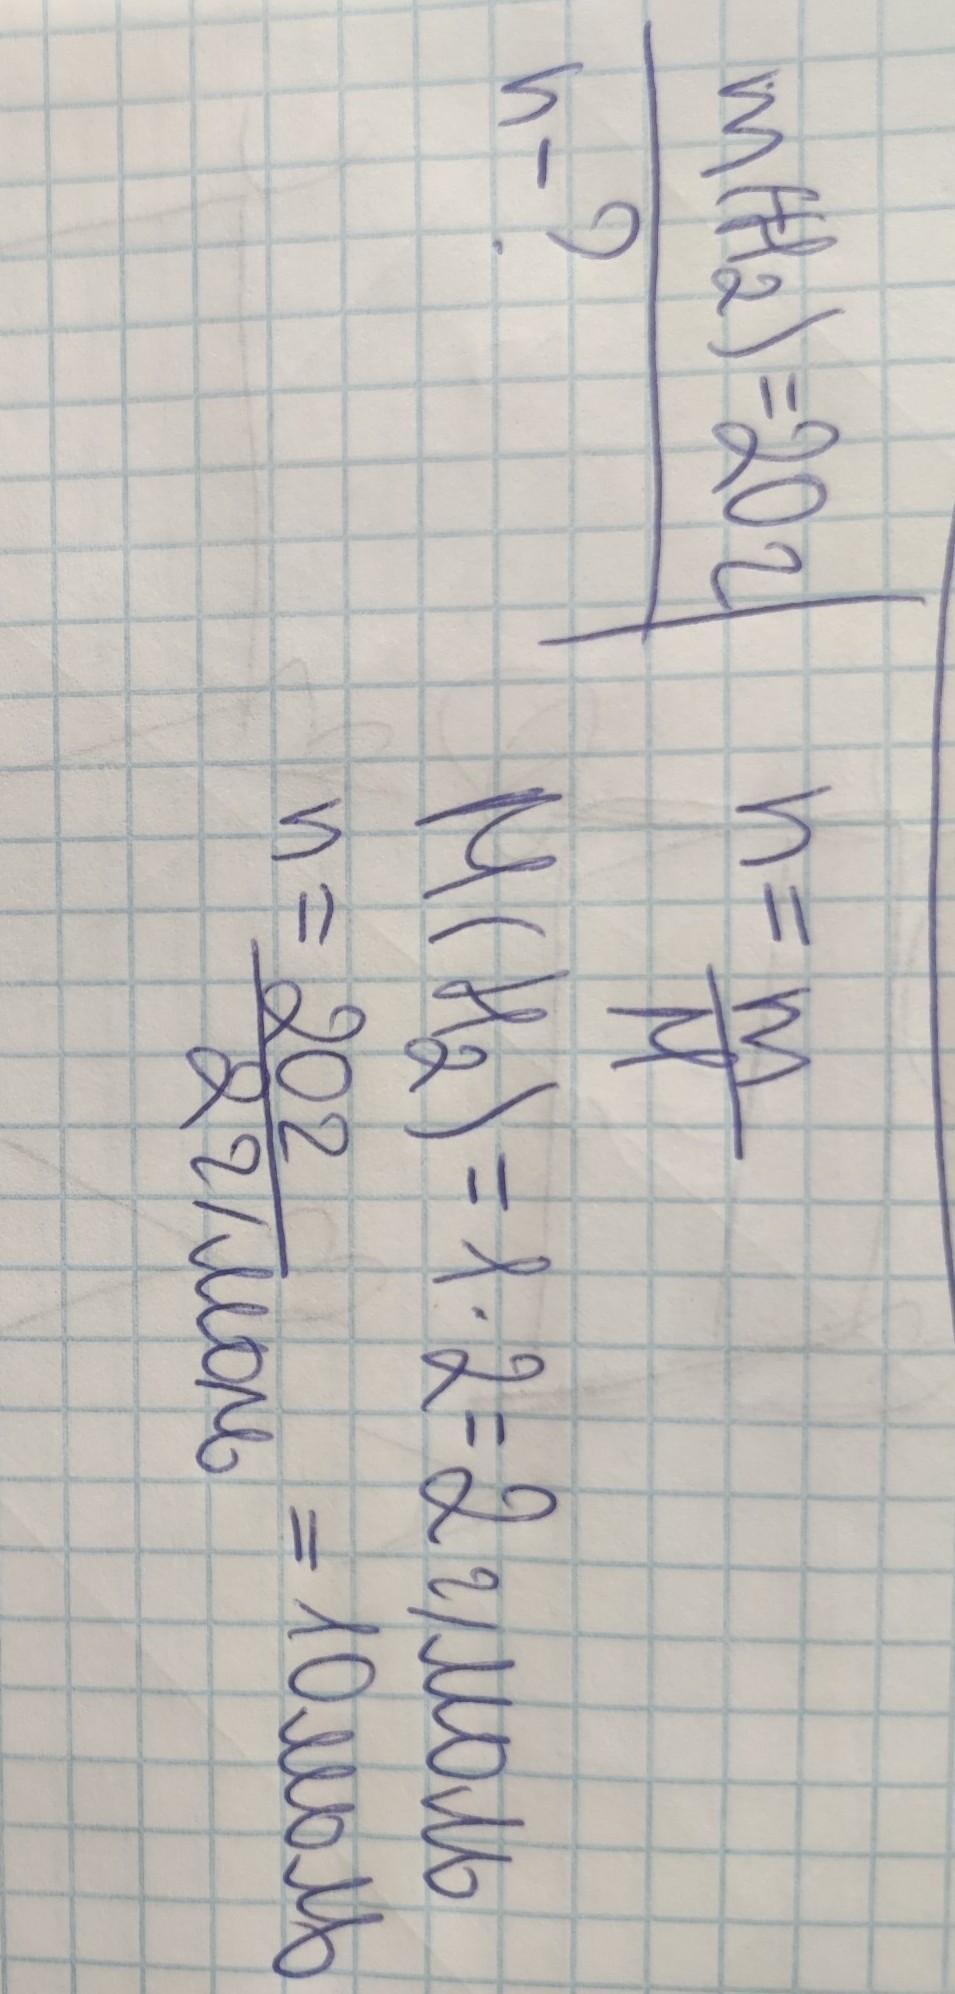 m(H₂)=20г
n-?
n = m/M
M(H₂)=1·2=2 г/моль
n = 20г/2 г/моль = 10моль